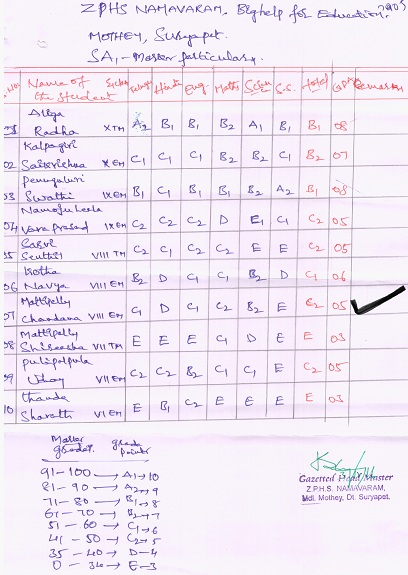 ZPHS NAMAVARAM, Big help for Education,
MOTHEY, Suryapet.
SA1 - Master particulars.
Name of the Student Telugu Hindi Eng Maths Scien S.S. Total GPA Remarks
Radha X TM A2 B1 B1 B2 A1 B1 B1 08
02 Kalpagiri
Saikrishna X EM C1 C1 C1 B2 B2 C1 B2 07
03 Penuguluri
Swathi IX EM B1 C1 B1 B1 B2 A2 B1 08
04
Vara Prasad IX EM C2 C2 C2 D E1 C1 C2 05
VIII TM C2 C1 C2 C2 E E C2 05
Kotha
Navya VIII EM B2 D C1 C1 B2 D C1 06
07 Mattipelly
Chandana VIII EM C1 D C1 C2 B2 E C2 05
08 Mattipelly
Shireesha VII TM E E E C1 D E E 03
09 Pulipalpula
Uday VII EM C2 C2 B2 C1 C1 E C2 05
10 thanda
Sharath VI EM E B1 C2 E E E E 03
grade points
91 - 100 → A1 → 10
81 - 90 → A2 → 9
71 - 80 → B1 → 8
61 - 70 → B2 → 7
51 - 60 → C1 → 6
41 - 50 → C2 → 5
35 - 40 → D - 4
0 - 34 → E - 3
Gazetted Head Master
Z.P.H.S. NAMAVARAM,
Mdl. Mothey, Dt. Suryapet.